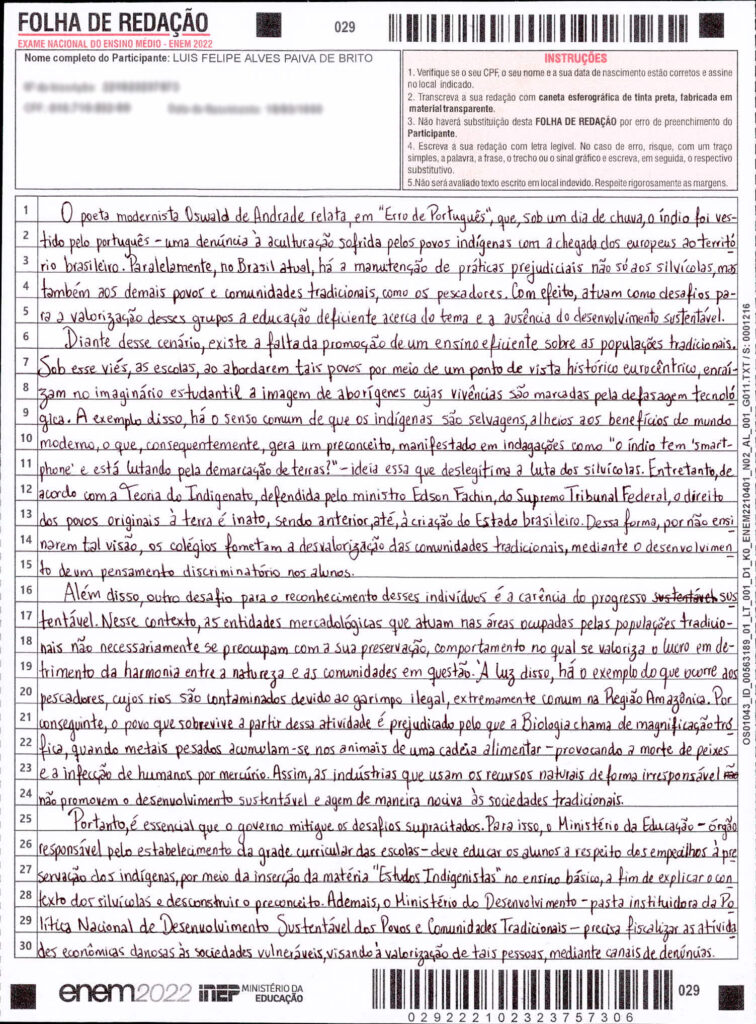 FOLHA DE REDAÇÃO
029
EXAME NACIONAL DO ENSINO MÉDIO - ENEM 2022
Nome completo do Participante: LUIS FELIPE ALVES PAIVA DE BRITO
INSTRUÇÕES
1. Verifique se o seu CPF, o seu nome e a sua data de nascimento estão corretos e assine
no local indicado.
2. Transcreva a sua redação com caneta esferográfica de tinta preta, fabricada em
material transparente.
3. Não haverá substituição desta FOLHA DE REDAÇÃO por erro de preenchimento do
Participante.
4. Escreva a sua redação com letra legível. No caso de erro, risque, com um traço
simples, a palavra, a frase, o trecho ou o sinal gráfico e escreva, em seguida, o respectivo
substitutivo.
5.Não será avaliado texto escrito em local indevido. Respeite rigorosamente as margens.
1 O poeta modernista Oswald de Andrade relata, em "Erro de Português", que, sob um dia de chuva, o índio foi ves-
2 tido pelo português - uma denúncia à aculturação sofrida pelos povos indígenas com a chegada dos europeus ao territó
3 rio brasileiro. Paralelamente, no Brasil atual, há a manutenção de práticas prejudiciais não só aos silvícolas, mas
4 também aos demais povos e comunidades tradicionais, como os pescadores. Com efeito, atuam como desafios pa-
5 ra a valorização desses grupos a educação deficiente acerca do tema e a ausência do desenvolvimento sustentável.
6 Diante desse cenário, existe a falta da promoção de um ensino eficiente sobre as populações tradicionais.
7 Sob esse viés, as escolas, ao abordarem tais povos por meio de um ponto de vista histórico eurocêntrico, enraí-
8 zam no imaginário estudantil a imagem de aborígenes cujas vivências são marcadas pela defasagem tecnoló
9 gica. A exemplo disso, há o senso comum de que os indígenas são selvagens, alheios aos benefícios do mundo
10 moderno, o que, consequentemente, gera um preconceito, manifestado em indagações como "o índio tem 'smart-
11 phone' e está lutando pela demarcação de terras?" - ideia essa que deslegitima a luta dos silvícolas. Entretanto, de
12 acordo com a Teoria do Indigenato, defendida pelo ministro Edson Fachin, do Supremo Tribunal Federal, o direito
13 dos povos originais à terra é inato, sendo anterior, até, à criação do Estado brasileiro. Dessa forma, por não ensi
14 narem tal visão, os colégios fometam a desvalorização das comunidades tradicionais, mediante o desenvolvimen-
15 to de um pensamento discriminatório nos alunos.
16 Além disso, outro desafio para o reconhecimento desses indivíduos é a carência do progresso sustentável sus
17 tentável. Nesse contexto, as entidades mercadológicas que atuam nas áreas ocupadas pelas populações tradicio-
18 nais não necessariamente se preocupam com a sua preservação, comportamento no qual se valoriza o lucro em de-
19 trimento da harmonia entre a natureza e as comunidades em questão. À luz disso, há o exemplo do que ocorre aos
20 pescadores, cujos rios são contaminados devido ao garimpo ilegal, extremamente comum na Região Amazônica. Por
21 conseguinte, o povo que sobrevive a partir dessa atividade é prejudicado pelo que a Biologia chama de magnificação tró
22 fica, quando metais pesados acumulam-se nos animais de uma cadeia alimentar - provocando a morte de peixes
23 e a infecção de humanos por mercúrio. Assim, as indústrias que usam os recursos naturais de forma irresponsável não
24 não promovem o desenvolvimento sustentável e agem de maneira nociva às sociedades tradicionais.
25 Portanto, é essencial que o governo mitigue os desafios supracitados. Para isso, o Ministério da Educação - órgão
26 responsável pelo estabelecimento da grade curricular das escolas - deve educar os alunos a respeito dos empecilhos à pre
27 servação dos indígenas, por meio da inserção da matéria "Estudos Indigenistas" no ensino básico, a fim de explicar o con
28 texto dos silvícolas e desconstruir o preconceito. Ademais, o Ministério do Desenvolvimento - pasta instituidora da Po
29 lítica Nacional de Desenvolvimento Sustentável dos Povos e Comunidades Tradicionais - precisa fiscalizar as ativida
30 des econômicas danosas às sociedades vulneráveis, visando à valorização de tais pessoas, mediante canais de denúncias.
OS01043_ID_00563189_01_LT_001_D1_K0_ENEM2210401_N02_AL_001_G011.TXT / S: 0001216
enem2022 INEP MINISTÉRIO DA
EDUCAÇÃO
029
0292221023237573 06